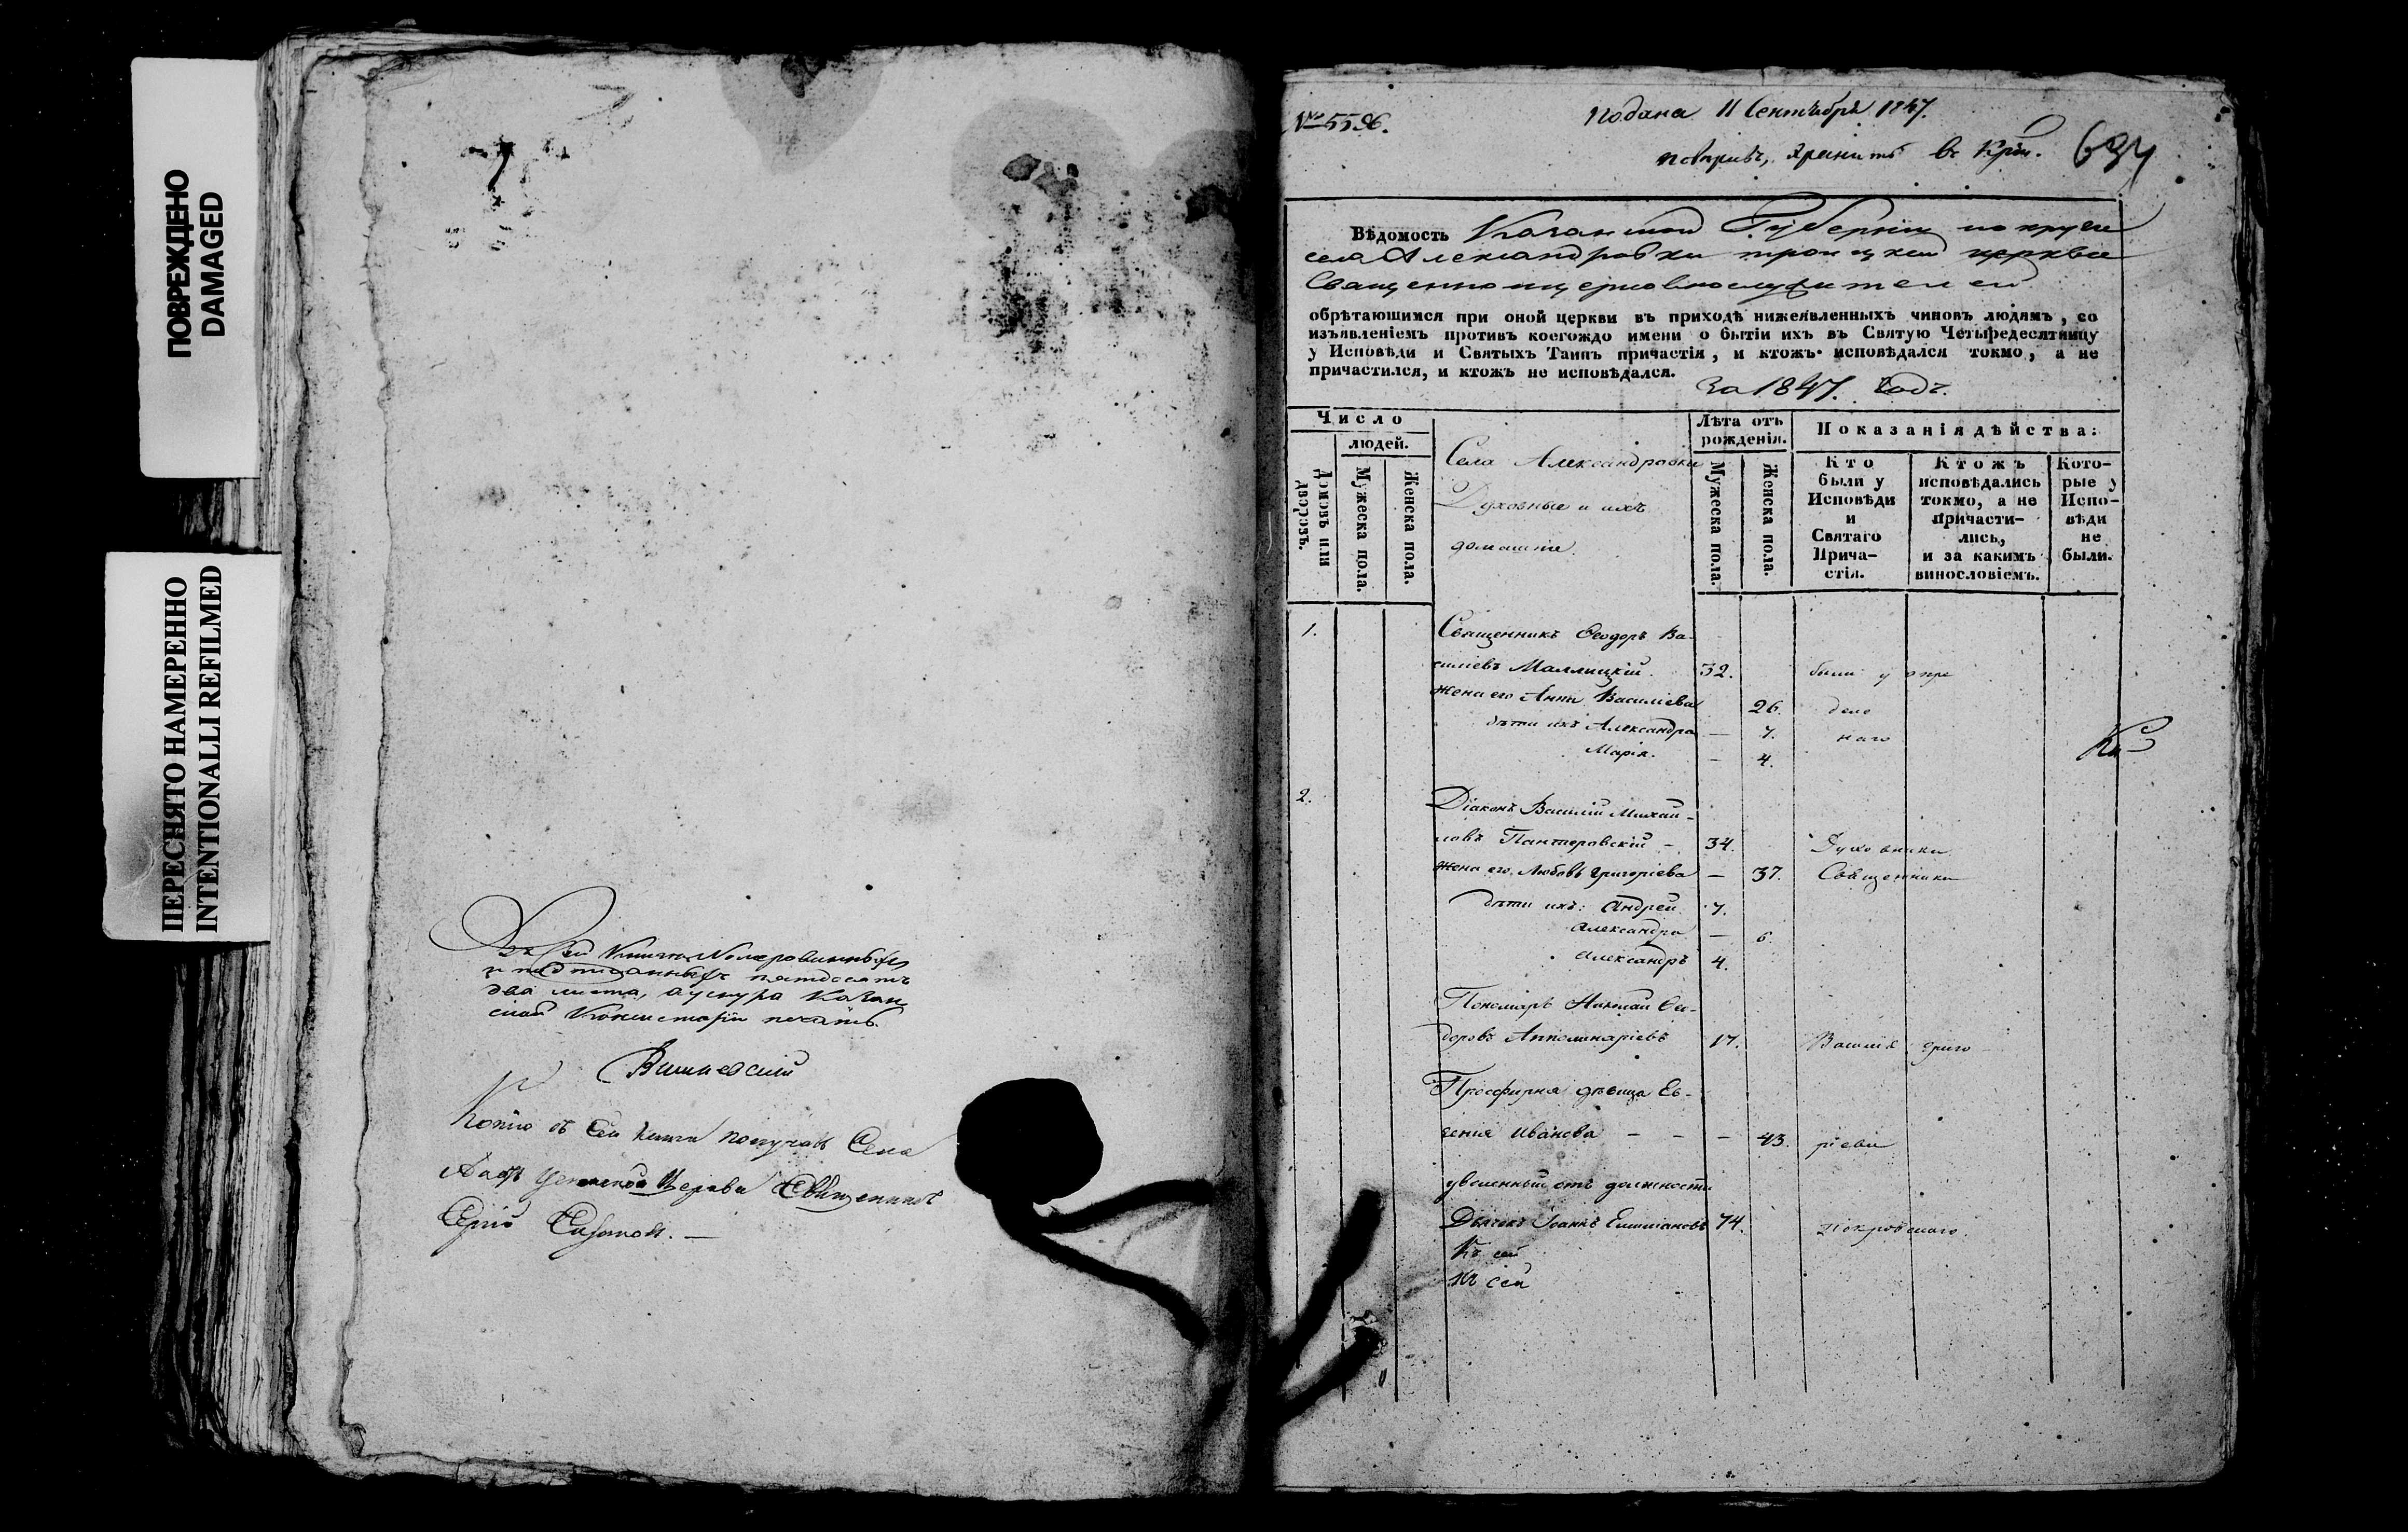 ПОВРЕЖДЕНО
DAMAGED
ПЕРЕСНЯТО НАМЕРЕННО
INTENTIONALLI REFILMED
два листа, Казан
ской Консисторіи печать.
Вишневскій
Копію съ сей книги получилъ Села
церкви Священникъ
№ 5596.
подана 11 Сентября 1847.
хранить въ 634
Вѣдомость Казанской Губерніи
села Александровки троицкой церкви
Священноицерковнослужителей
обрѣтающимся при оной церкви въ приходѣ нижеявленныхъ чиновъ людямъ, со
изъявленіемъ противъ коегождо имени о бытіи ихъ въ Святую Четыредесятницу
у Исповѣди и Святыхъ Таинъ причастія, и ктожъ исповѣдался токмо, а не
причастился, и ктожъ не исповѣдался.
За 1847. Годъ.
Число
людей.
Домовъ или
дворовъ.
Мужеска пола.
Женска пола.
Села Александровки
Духовные и ихъ
домашніе.
Лѣта отъ
рожденія.
Мужеска пола.
Женска пола.
Показанія дѣйства:
Кто
были у
Исповѣди
и
Святаго
Прича-
стія.
Ктожъ
исповѣдались
токмо, а не
причасти-
лись,
и за какимъ
винословіемъ.
Кото-
рые у
Испо-
вѣди
не
были.
1. Священникъ Ѳеодоръ Ва-
силіевъ Маллицкій. 32. были у опре
жена его Анна Васильева 26. дѣле
дѣти ихъ Александра — 7. наго
Марія. — 4.
2. Діаконъ Василій Михай-
ловъ Пантеровскій — 34. Духовника
жена его Любовь Григоріева — 37. Священника
дѣти ихъ: Андрей 7.
Александра — 6.
Александръ 4.
Пономарь Николай Ѳе-
доровъ Апполинаріевъ 17. Василія Григо
Просфирня дѣвица Ев-
генія Иванова — — — 43. ріева
уволенный отъ должности
Дьячекъ Іоаннъ Емиліановъ 74. Покровскаго.
Къ сей
Къ сей